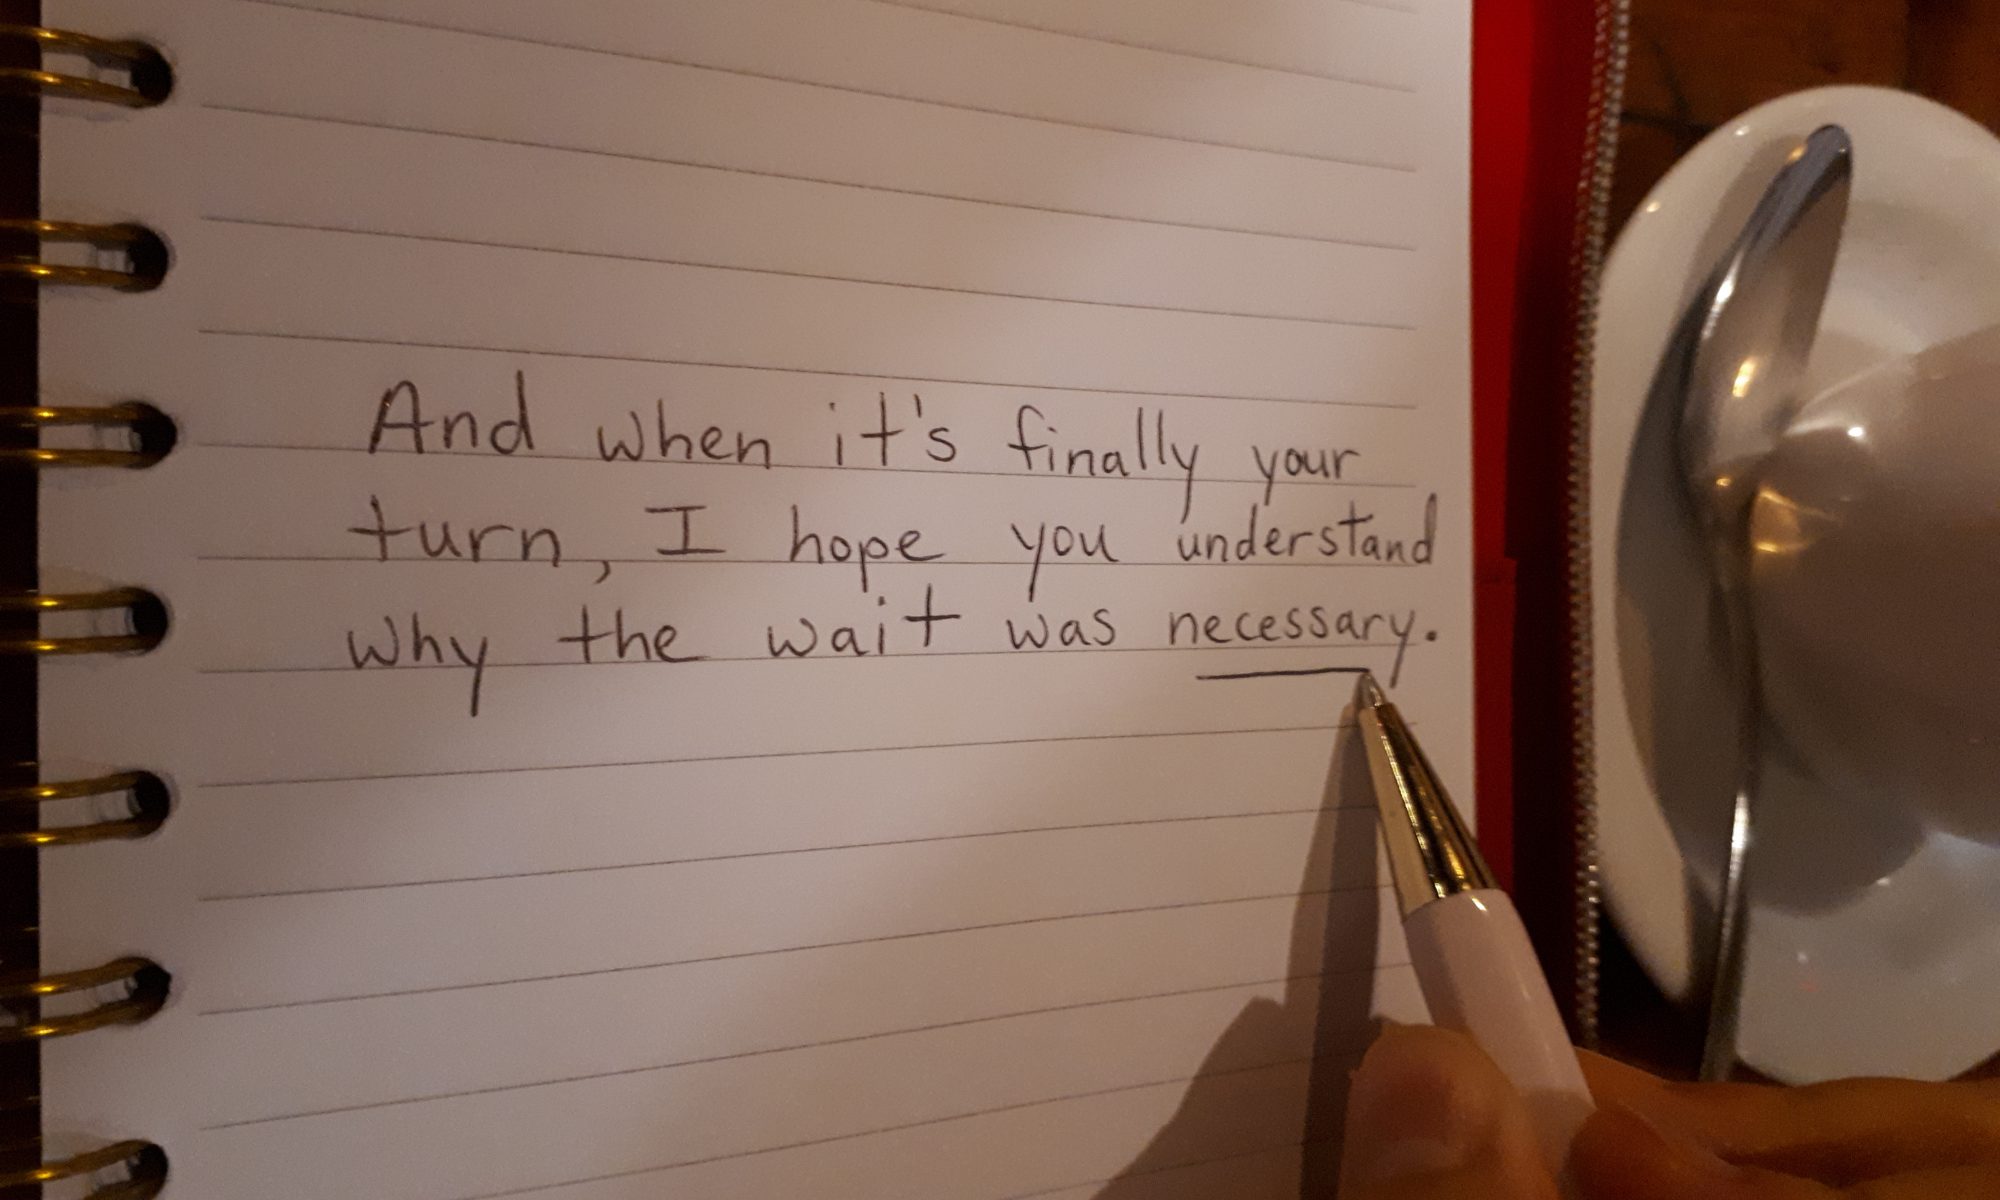 And when it's finally your
turn, I hope you understand
why the wait was necessary.